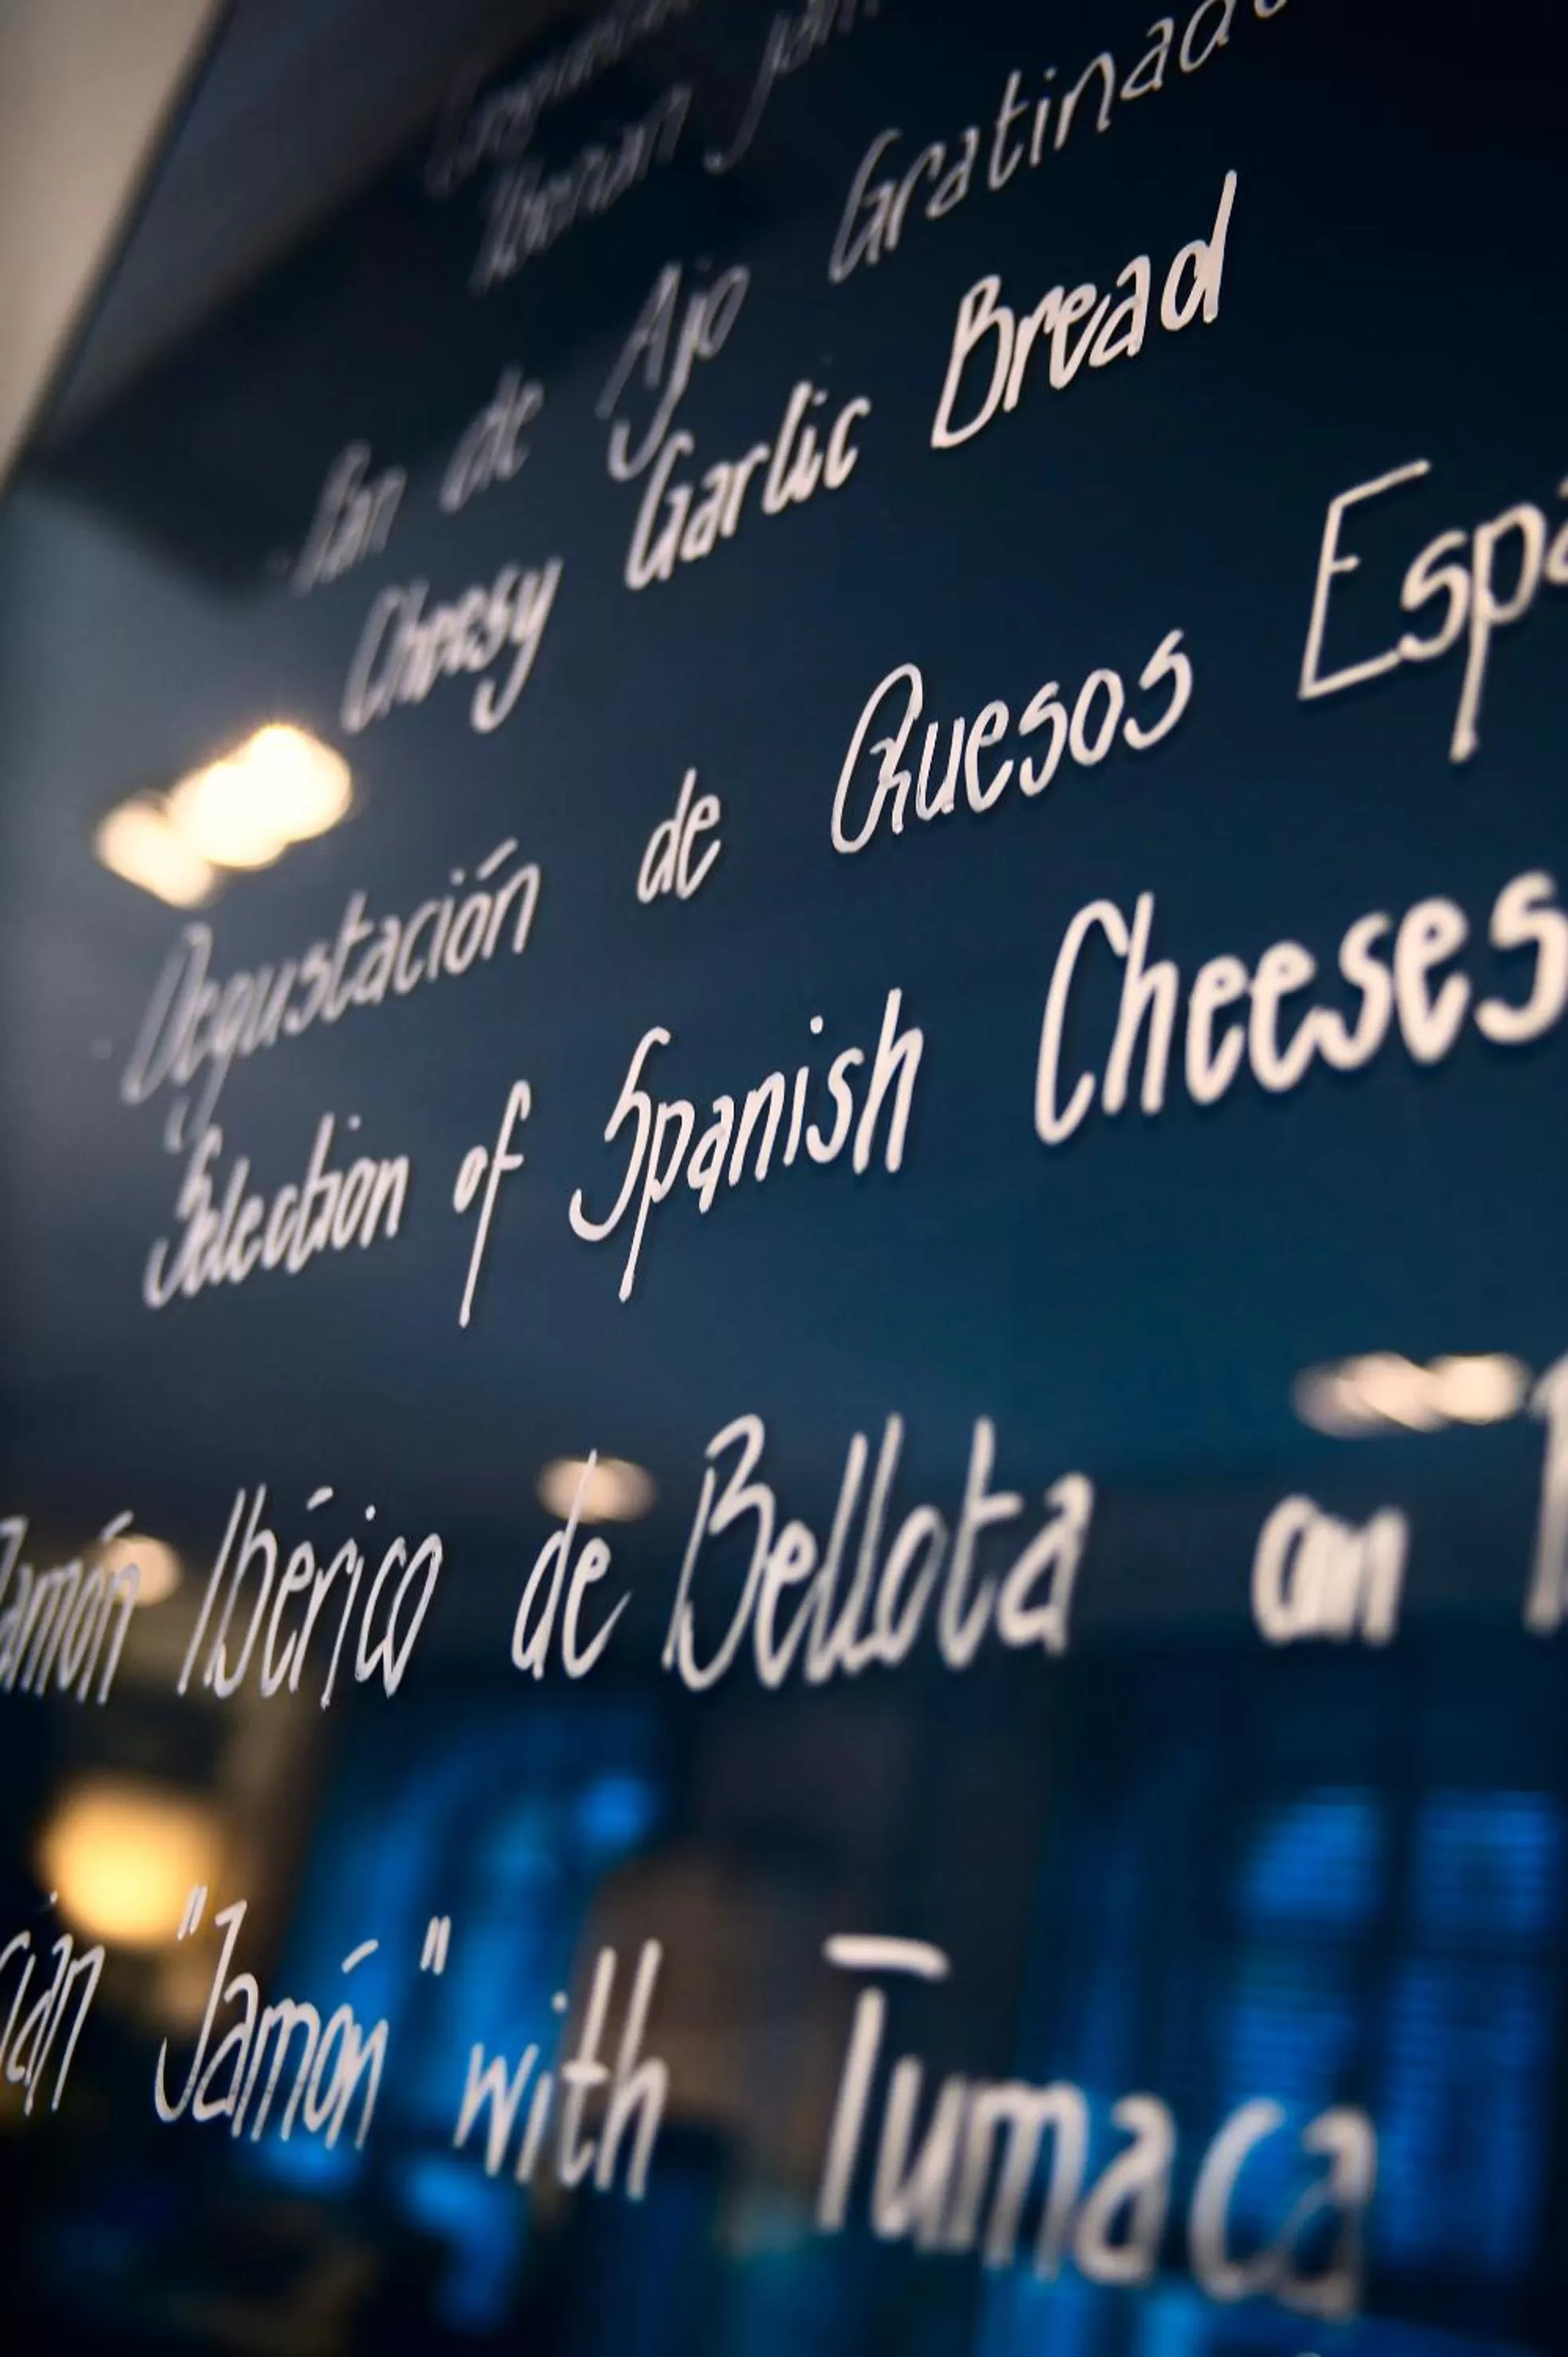 Iberian
Pan de Ajo Gratinado
Cheesy Garlic Bread
Degustación de Quesos Espa
Selection of Spanish Cheeses
Jamón Ibérico de Bellota con
"Jamón" with Tumaca